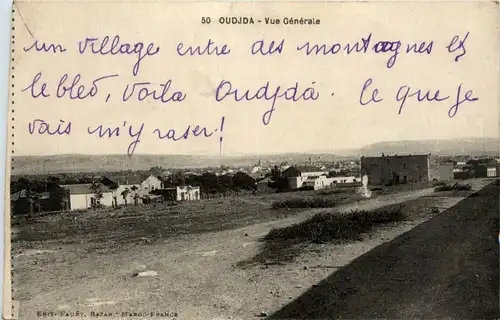 50 OUDJDA - Vue Générale
un village entre des montagnes et
le bled, voila Oudjda. ce que je
vais m'y raser !
EDIT- FAURÉ, BAZAR - MAROC-FRANCE